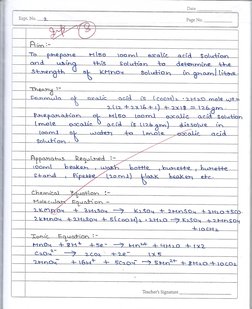 Date
Expt. No. 3
Page No.
Aim:-
To prepare M/50 100ml oxalic acid solution
and using this solution to determine the
strength of KMnO4 solution in gram/litre.
Theory:-
Formula of oxalic acid is (COOH)2·2H2O mole wt=
2(12+2x16+1)+2x18=126gm
Preparation of M/50 100ml oxalic acid solution
1mole oxalic acid is (126gm) dissolve in
100ml of water to 1mole oxalic acid
solution.
Apparatus Required:-
100ml beaker, wash bottle, burette, burette
stand, Pipette (20ml) flask beaker, etc.
Chemical Equation:-
Molecular Equation-
2KMnO4 + 3H2SO4 → K2SO4 + 2MnSO4 + 3H2O+5[O]
2KMnO4 + 3H2SO4 + 5(COOH)2·2H2O → K2SO4 + 2MnSO4
+10CO2
Ionic Equation:-
MnO4- + 8H+ + 5e- → Mn2+ + 4H2O ]x2
C2O4-- → 2CO2 + 2e- ]x5
2MnO4- + 16H+ + 5C2O4-- → 2Mn2+ + 8H2O+10CO2
Teacher's Signature